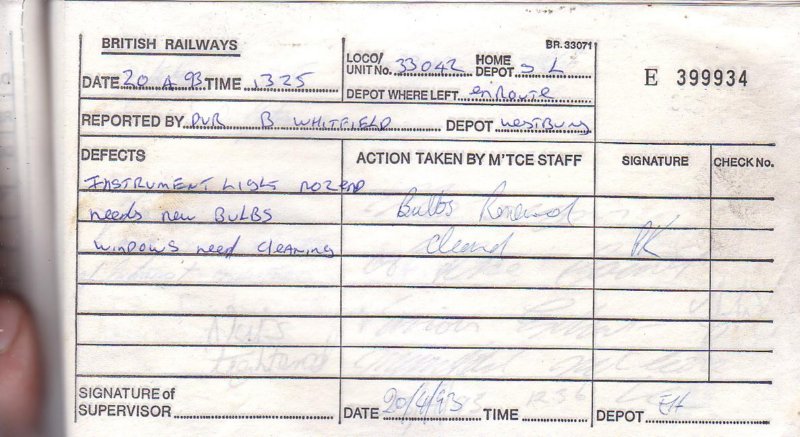 BR. 33071
BRITISH RAILWAYS
E 399934
DATE 20 4 93 TIME 1325
LOCO/ UNIT No. 33042 HOME DEPOT S L
DEPOT WHERE LEFT enRoute
REPORTED BY DVR B WHITFIELD DEPOT Westbury
DEFECTS ACTION TAKEN BY M'TCE STAFF SIGNATURE CHECK No.
INSTRUMENT LIGHT NO2END
needs new BULBS Bulbs Renewed
WINDOWS need CLEANING Cleaned PK
SIGNATURE of SUPERVISOR
DATE 20/4/93 TIME DEPOT EH